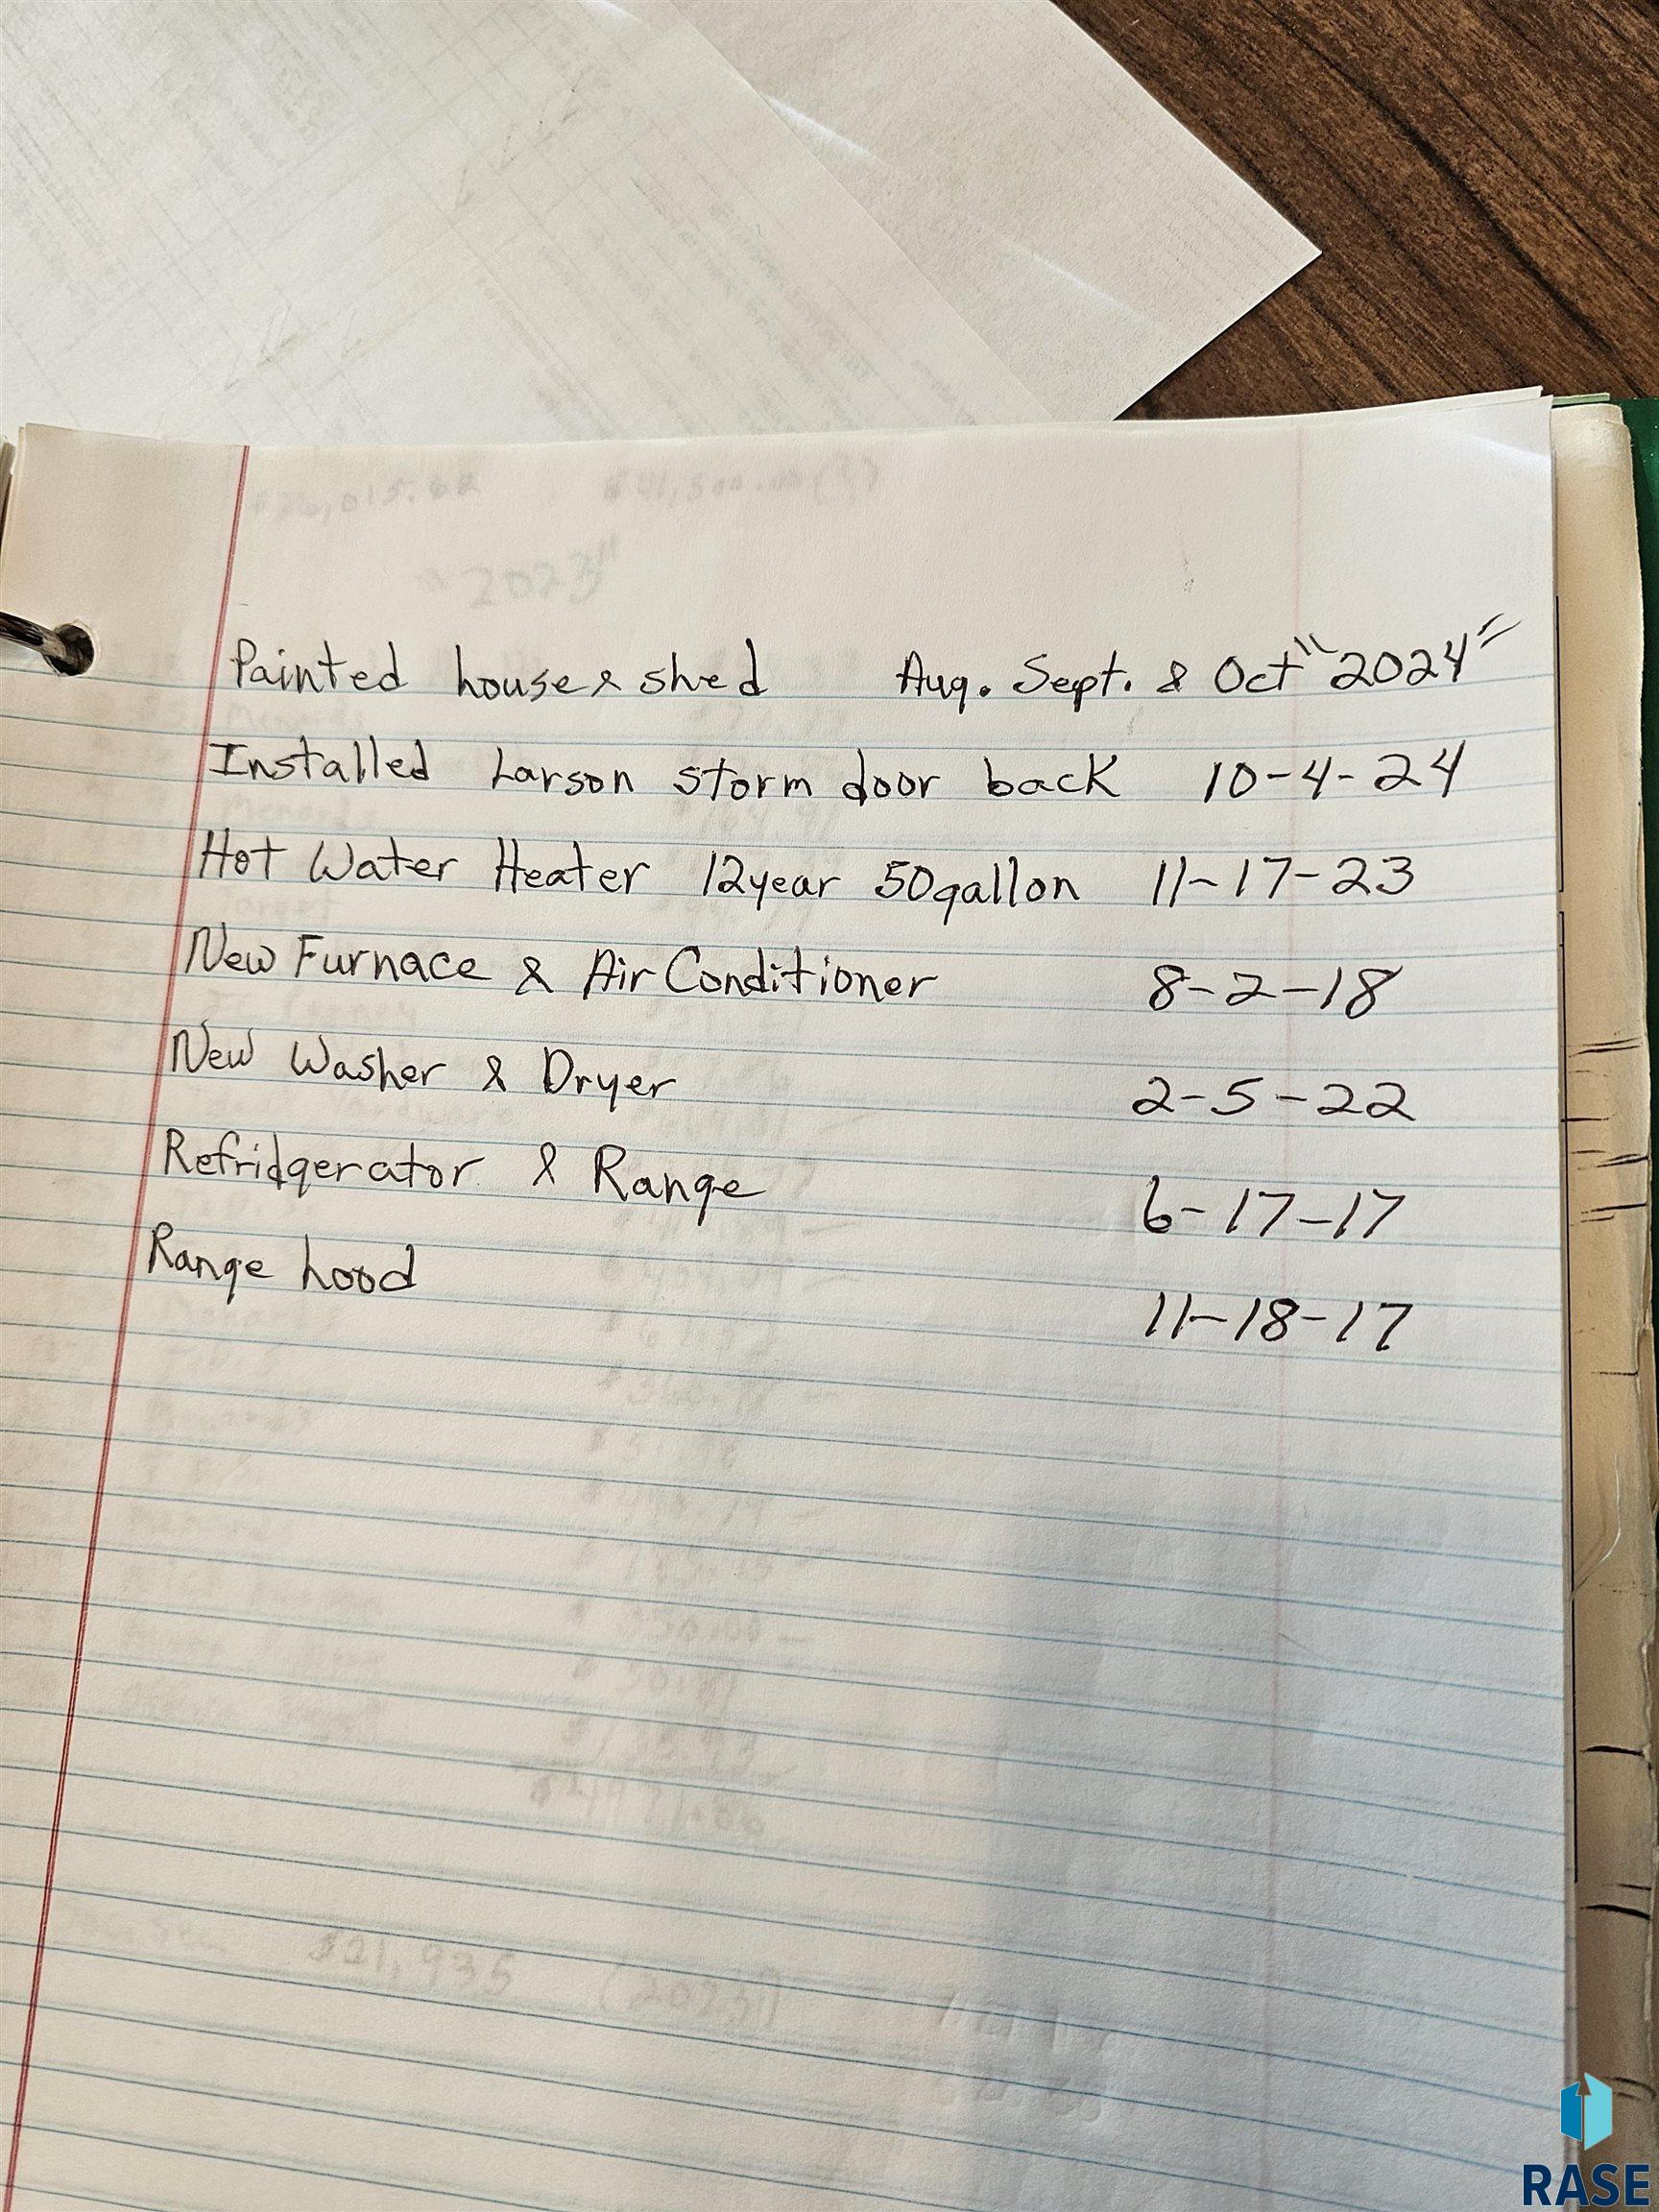 Painted house & shed Aug. Sept. & Oct "2024"
Installed Larson storm door back 10-4-24
Hot Water Heater 12year 50gallon 11-17-23
New Furnace & Air Conditioner 8-2-18
New Washer & Dryer 2-5-22
Refridgerator & Range 6-17-17
Range hood 11-18-17
$21,935 (2023)
"2023"
RASE